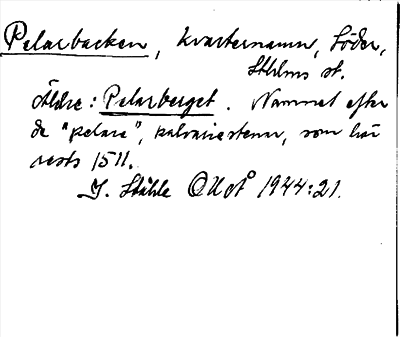 Pelarbacken, kvartersnamn, Söder,
Sthlms st.
Äldre: Pelarberget. Namnet efter
de "pelare", kalvariestenar, som här
rests 1511.
I. Ståhle OUÅ 1944:21.